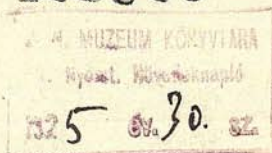 N. MUZEUM KÖNYVTÁRA
Nyomt. Növedéknapló
1925 év. 30. sz.